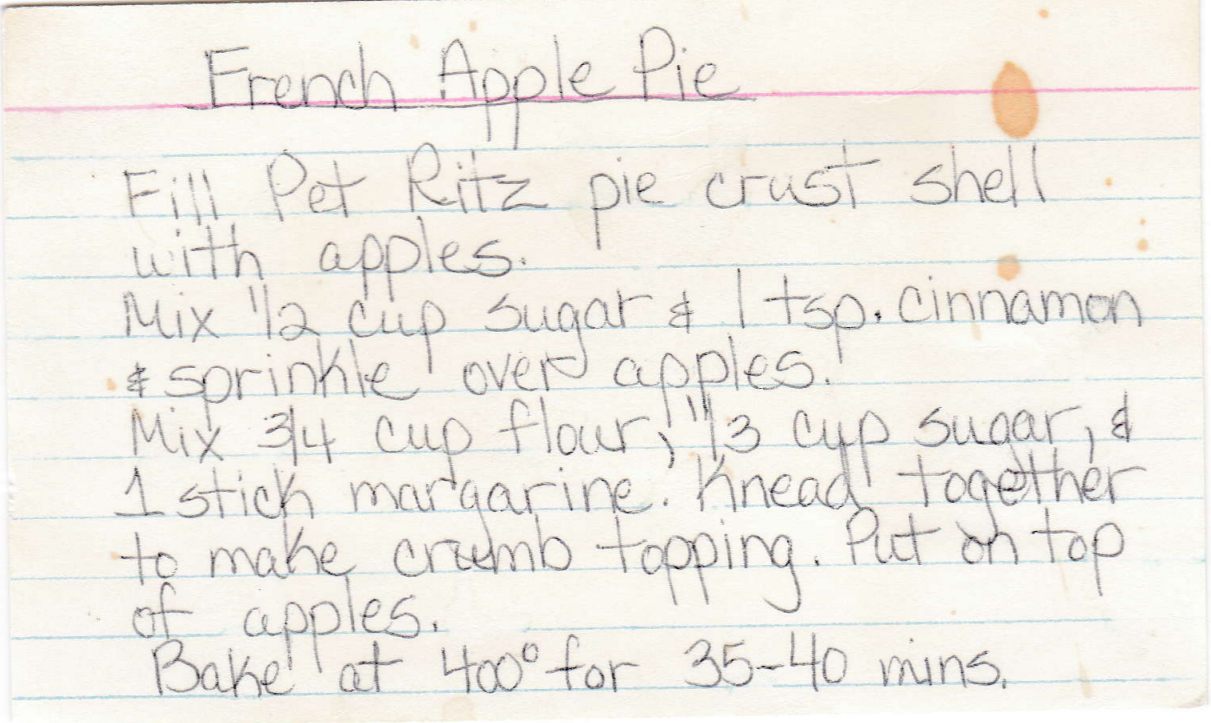 French Apple Pie
Fill Pet Ritz pie crust shell
with apples.
Mix 1/2 cup sugar & 1 tsp. cinnamon
& sprinkle over apples.
Mix 3/4 cup flour, 1/3 cup sugar, &
1 stick margarine. Knead together
to make crumb topping. Put on top
of apples.
Bake at 400° for 35-40 mins.